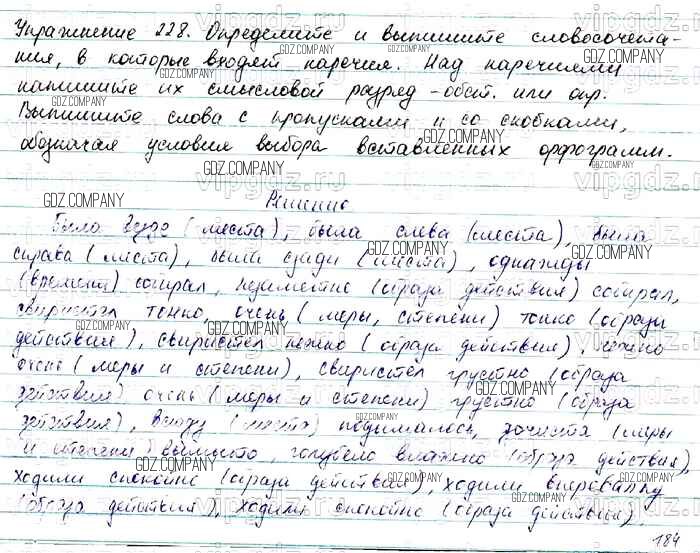 Упражнение 228. Определите и выпишите словосочета-
ния, в которые входят наречия. Над наречиями
напишите их смысловой разряд - обст. или опр.
Выпишите слова с пропусками и со скобками,
обозначая условия выбора вставленных орфограмм.
Решение
Было везде (места), была слева (места), была
справа (места), была сзади (места), однажды
(времени) собирал, незаметно (образа действия) собирал,
свиристел тонко, очень (меры, степени) тонко (образа
действия), свиристел нежно (образа действия), нежно
очень (меры и степени), свиристел грустно (образа
действия) очень (меры и степени) грустно (образа
действия), внизу (места) поднималось, дочиста (меры
и степени) вымыто, голубело влажно (образа действия),
ходили спокойно (образа действия), ходили вперевалку
(образа действия), ходили спокойно (образа действия).
184
GDZ.COMPANY
vipgdz.ru